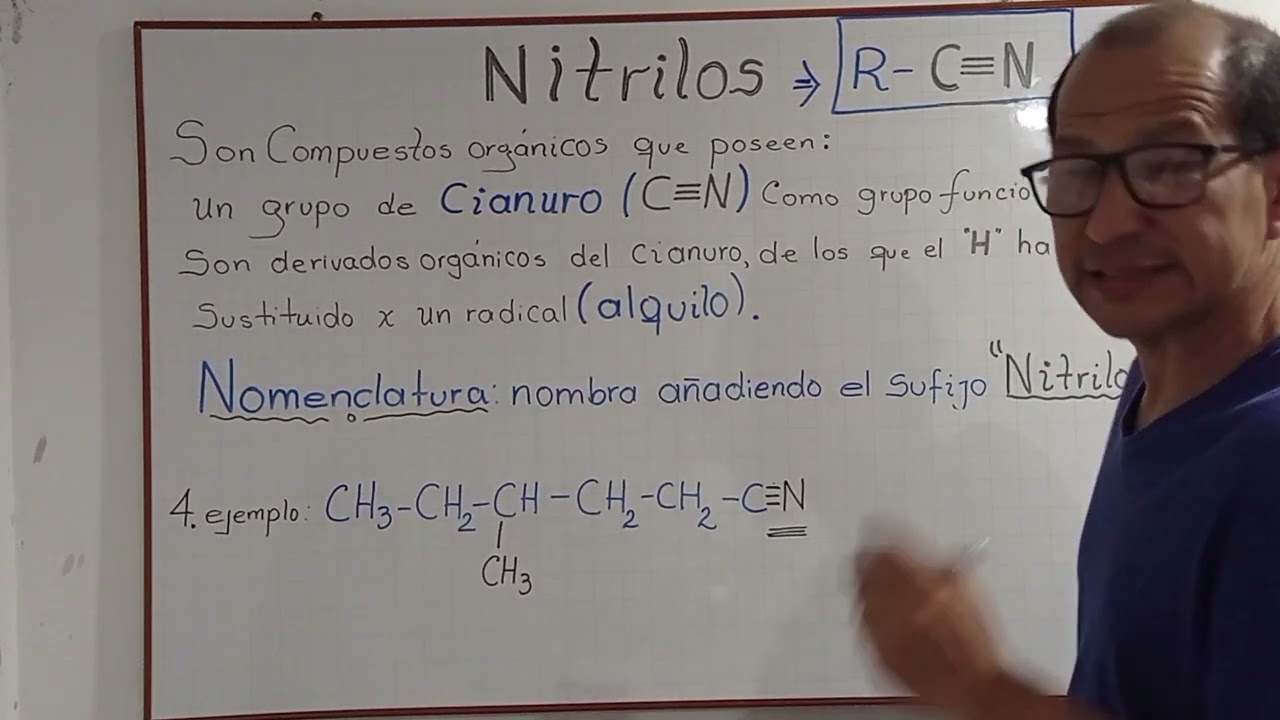 Nitrilos ⇒ R-C≡N
Son Compuestos orgánicos que poseen:
un grupo de Cianuro (C≡N) Como grupo funcio
Son derivados orgánicos del Cianuro, de los que el "H" ha
Sustituido x un radical (alquilo).
Nomenclatura: nombra añadiendo el sufijo "Nitrilo
4. ejemplo: CH₃-CH₂-CH-CH₂-CH₂-C≡N
CH₃